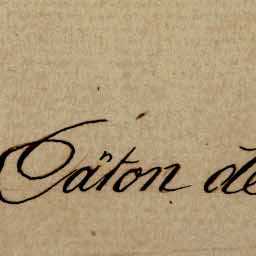 Cäton de